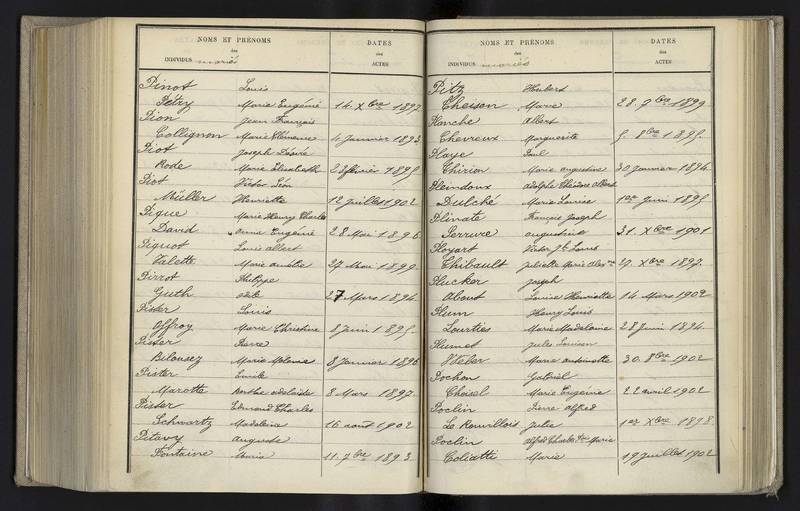 NOMS ET PRÉNOMS
des
INDIVIDUS mariés
DATES
des
ACTES
Pinot Louis
Pétry Marie Eugénie 14. Xbre 1897
Pion Jean François
Collignon Marie Clémence 4 Janvier 1893
Piot Joseph Désiré
Rode Marie Elisabeth 23 février 1895
Piot Victor Léon
Müller Henriette 12 juillet 1902
Pique Marie Henry Charles
David Anna Eugénie 28 Mai 1896
Piquot Louis Albert
Valette Marie Amélie 27 Mai 1899
Pirrot Philippe
Guth 27 Mars 1894
Pister Louis
Affroy Marie Christine 8 Juin 1895
Pister Pierre
Marie 8 Janvier 1896
Pister Emile
Marotte Berthe Adelaïde 8 Mars 1897
Pister Edmond Charles
Schwartz Madeleine 16 août 1902
Pitavy Auguste
Fontaine Maria 11. 7bre 1893
NOMS ET PRÉNOMS
des
INDIVIDUS mariés
DATES
des
ACTES
Pitz Hubert
Theison Marie 28. 7bre 1899
Planche Albert
Chevreux Marguerite 5. 8bre 1895
Playe Paul
Thirion Marie Augustine 30 Janvier 1894
Pleindoux Adolphe Théodore Albert
Dulché Marie Louise 1er Juin 1895
Plinate François Joseph
Serrure Augustine 31. Xbre 1901
Ployart Victor Jh Louis
Thibault Juliette Marie 27. Xbre 1897
Plucker Joseph
About Louise Henriette 14 Mars 1902
Plum Henry Louis
Lourties Marie Madeleine 28 Juin 1894
Plumet Jules
Weber Marie Antoinette 30. 8bre 1902
Pochon Gabriel
Choisel Marie Eugénie 22 avril 1902
Poclin Pierre Alfred
Le Rouvillois Julie 1er Xbre 1898
Poclin Alfred Charles Marie
Coliatti Marie 19 juillet 1902